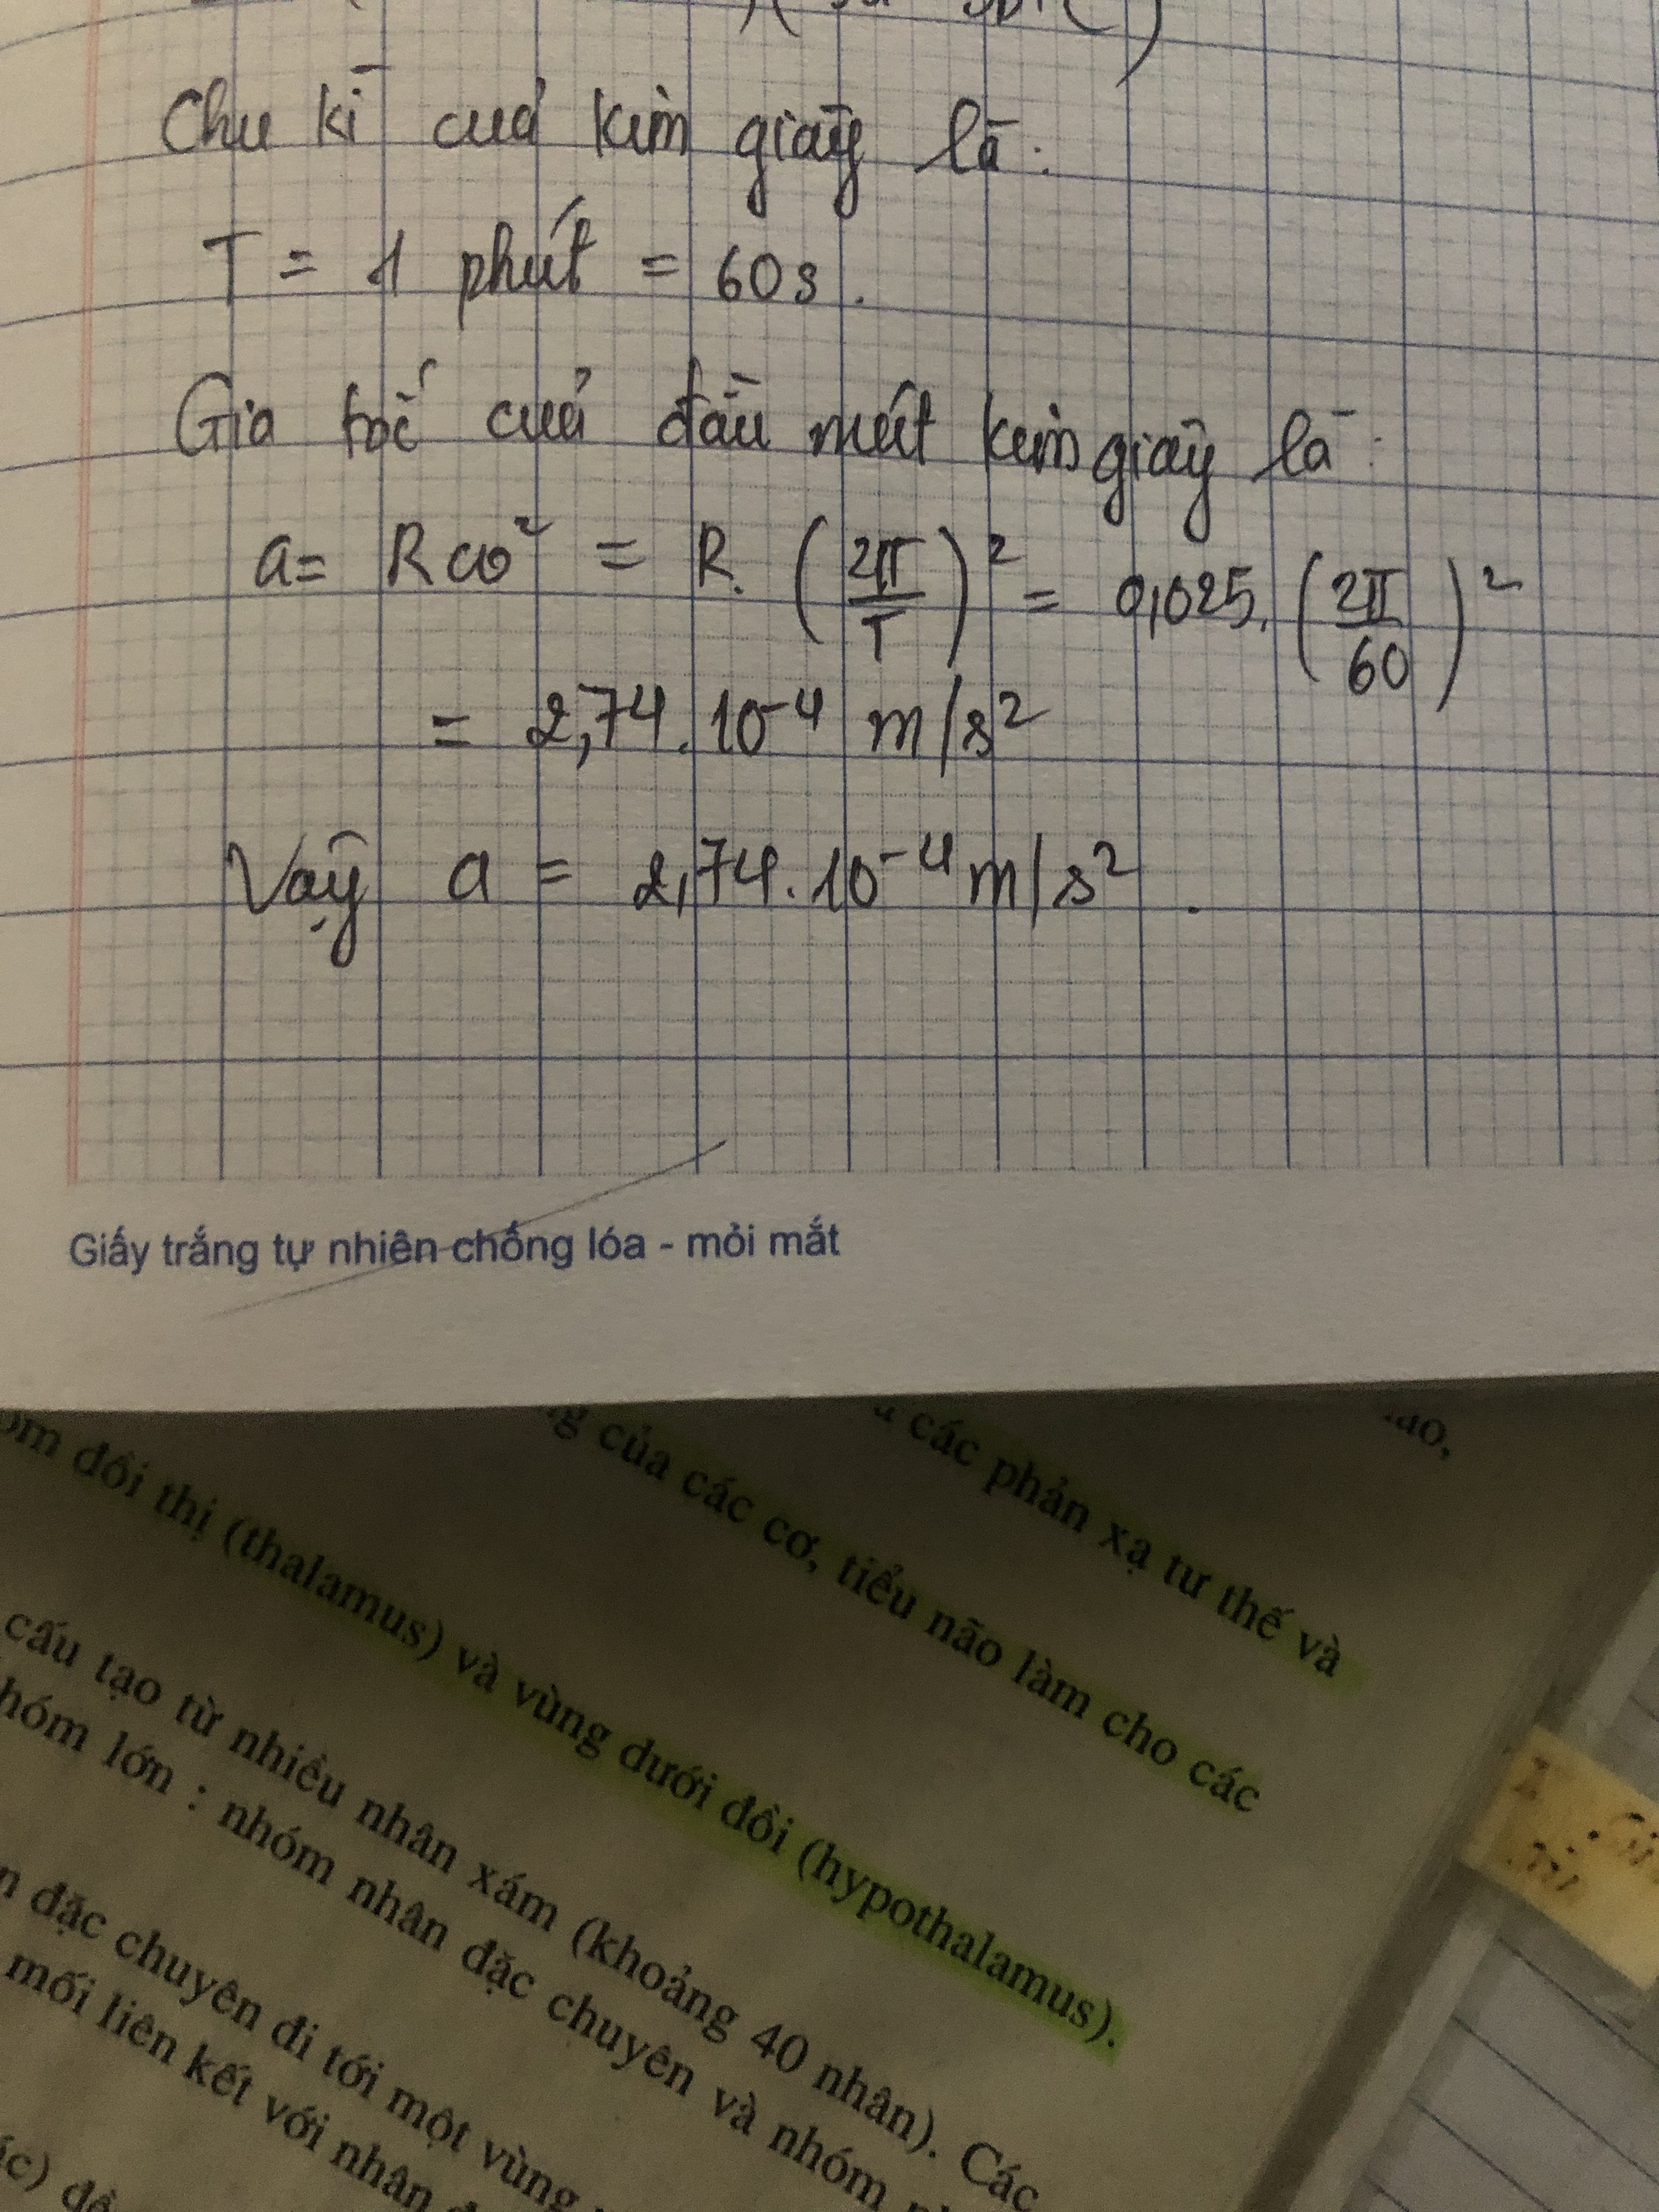 Chu kì của kim giây là:
T = 1 phút = 60s.
Gia tốc của đầu mút kim giây là:
a = Rω² = R. (2π/T)² = 0,025. (2π/60)²
= 2,74. 10⁻⁴ m/s²
Vậy a = 2,74. 10⁻⁴ m/s².
Giấy trắng tự nhiên chống lóa - mỏi mắt
các phản xạ tư thế và
của các cơ, tiểu não làm cho các
đồi thị (thalamus) và vùng dưới đồi (hypothalamus).
cấu tạo từ nhiều nhân xám (khoảng 40 nhân). Các
lớn : nhóm nhân đặc chuyên và nhóm
đặc chuyên đi tới một vùng
mối liên kết với nhân